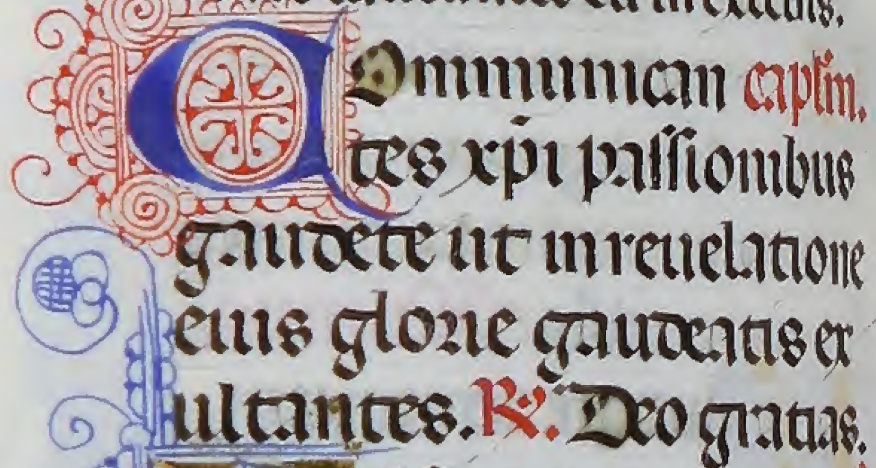 in excelsis.
COmmunican capl'm.
tes xp̄i passionibus
gaudete ut in reuelatione
eius glorie gaudeatis ex
ultantes. R̷. Deo gratias.